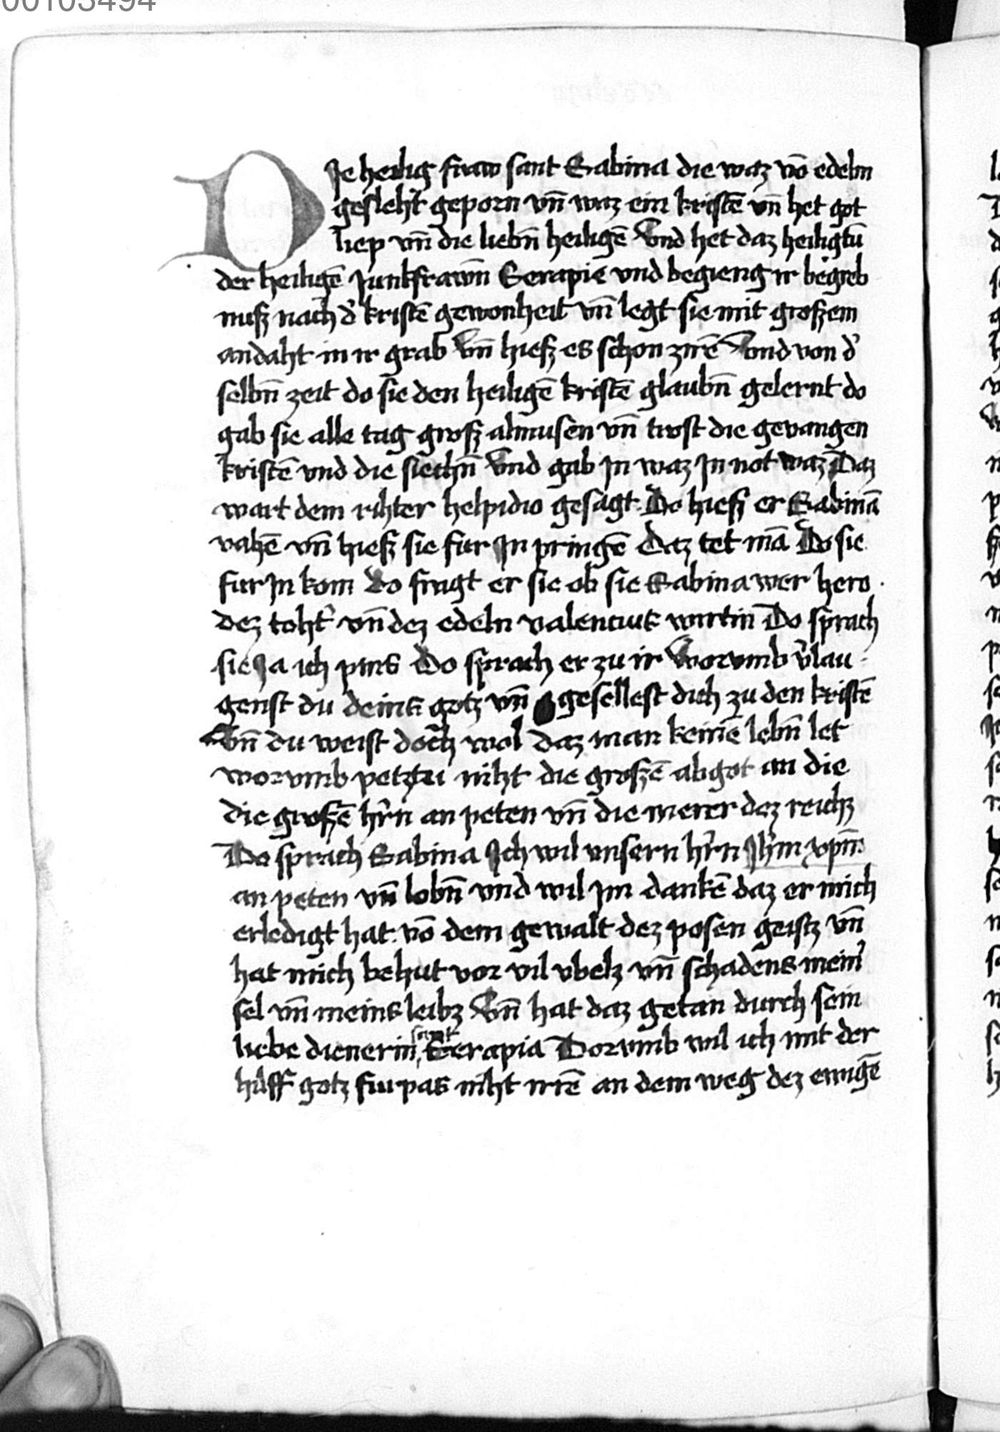 00103494
DIe heilig fraw sant Sabina die waz vō edeln
gesleht geporn vn̄ waz ein kristē vn̄ het got
liep vn̄ die liebn̄ heiligē Vnd het daz heiligtū
der heiligē Junkfrawn̄ Serapie vnd begieng ir begreb
nuſz nach d' kristē gewonheit vn̄ legt sie mit groſzem
andaht in ir grab Vn̄ hieſz es schon zirē Vnd von d'
selbn̄ zeit do sie den heiligē kristē glaubn̄ gelernt do
gab sie alle tag groſz almusen vn̄ trost die gevangen
kristē vnd die siechn̄ Vnd gab Jn waz Jn not waz Daz
wart dem rihter helpidio gesagt Do hieſz er Sabinā
vahē vn̄ hieſz sie fur Jn pringē Daz tet mā Do sie
fur Jn kom Do fragt er sie ob sie Sabina wer hero
dez toht' vn̄ dez edeln valencius wirtin Do sprach
sie Ja ich pins Do sprach er zu ir Worvmb v'lau
genst du deins gotz vn̄ gesellest dich zu den kristē
Vn̄ du weist doch wol daz man keinē lebn̄ let
worvmb petztu niht die groſzē abgot an die
die groſzē hr̄n an peten vn̄ die merer dez reichz
Do sprach Sabina Ich wil vnsern hr̄n Jh'm xpm̄
an peten vn̄ lobn̄ vnd wil jm dankē daz er mich
erledigt hat vō dem gewalt dez posen geistz vn̄
hat mich behut vor vil vbelz vn̄ schadens mein'
sel vn̄ meins leibz Vn̄ hat daz getan durch sein
liebe dienerin sant Serapia Dorvmb wil ich mit der
hilff gotz fur pas niht irrē an dem weg dez ewigē